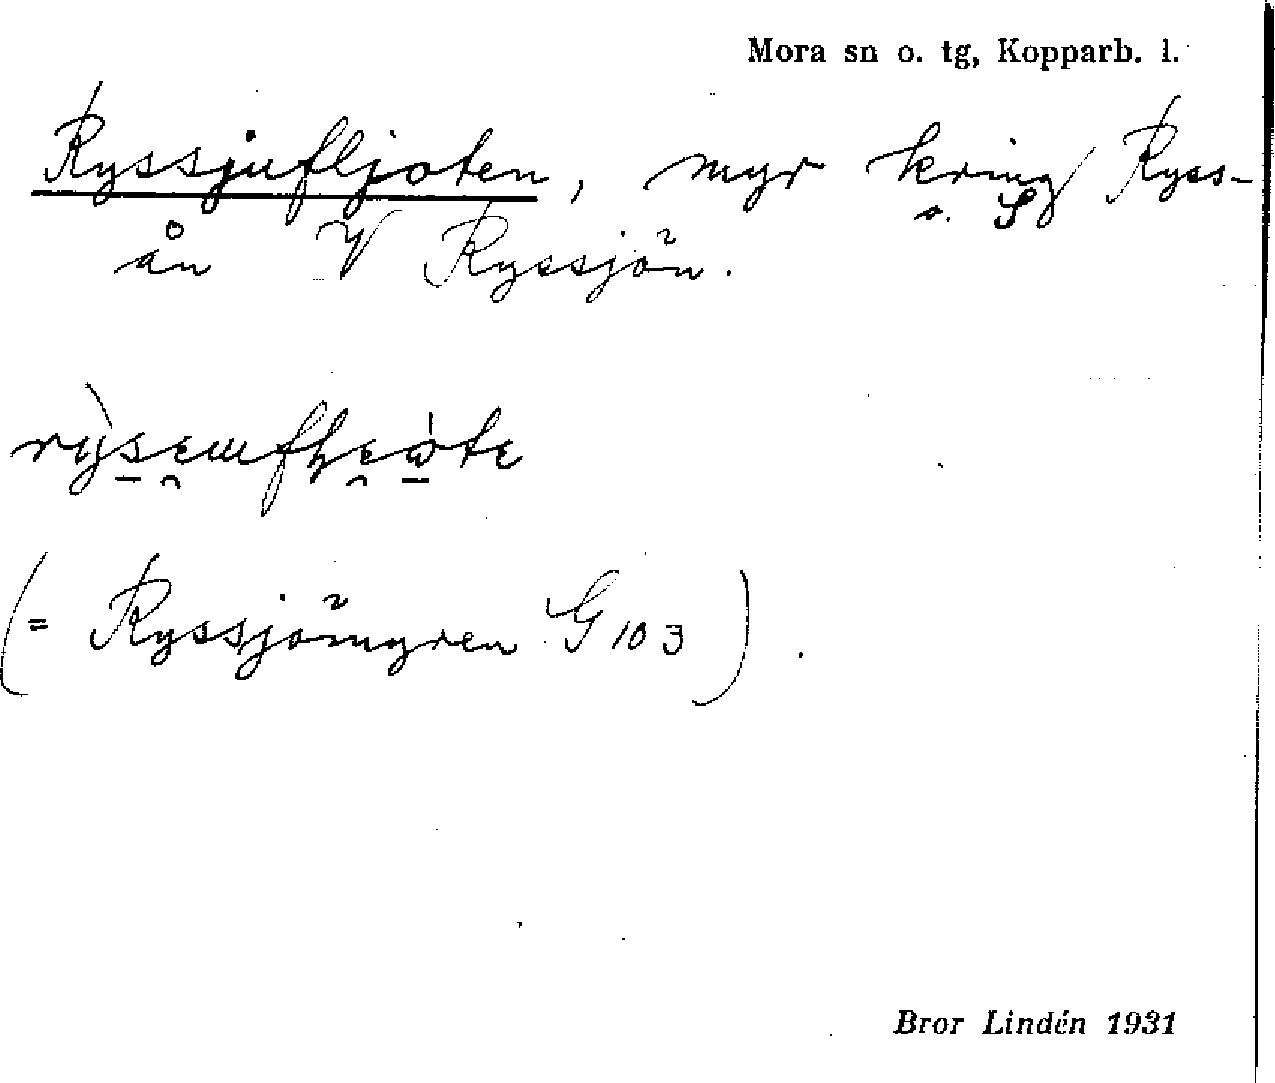 Mora sn o. tg, Kopparb. l.
Ryssjufljoten, myr kring Ryss-
ån o. S
V Ryssjön.
(= Ryssjömyren G 103).
Bror Lindén 1931